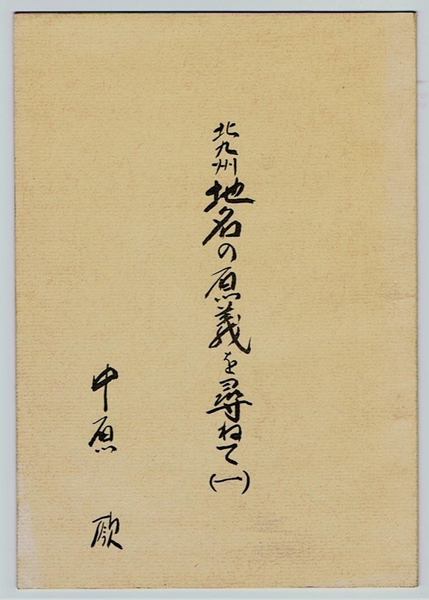 北九州地名の原義を尋ねて(一)
中原